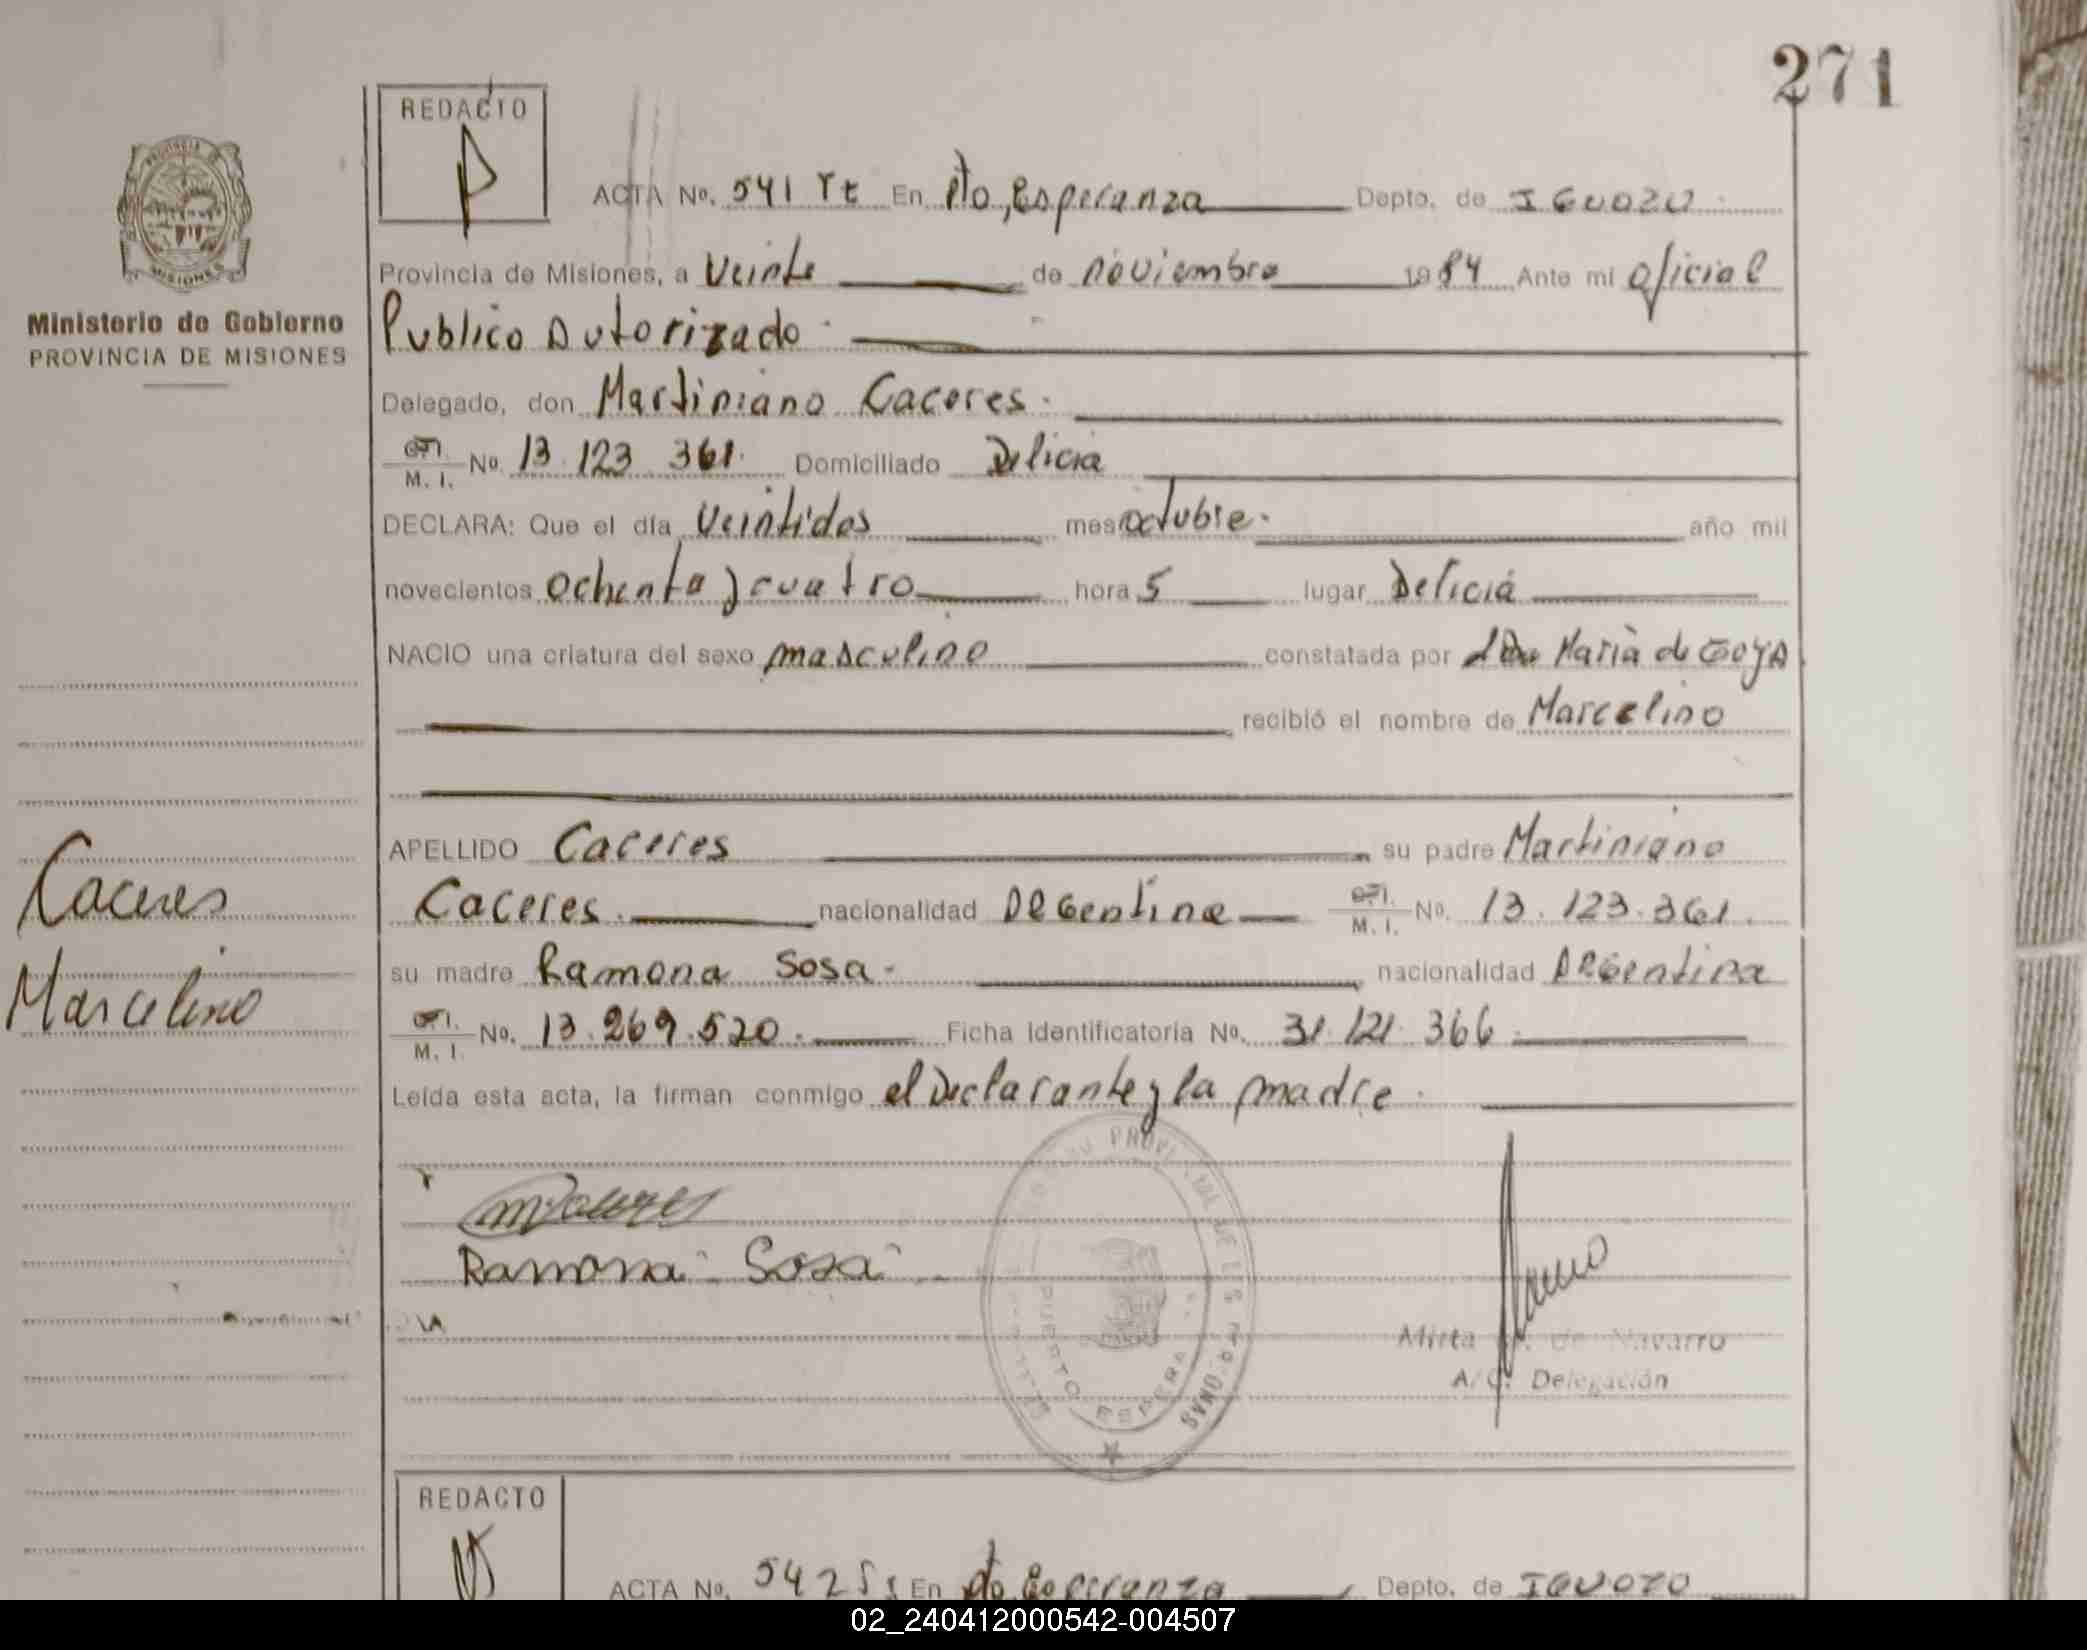 271
REDACTO
ACTA No. 541 Tt En Pto, Esperanza Depto. de IGUAZU
Ministerio de Gobierno
PROVINCIA DE MISIONES
Provincia de Misiones, a Veinte de noviembre 1984 Ante mi oficial
Publico Autorizado
Delegado, don Martiniano Caceres.
M. I. No. 13.123.361. Domiciliado Delicia
DECLARA: Que el día Veintidos mes octubre. año mil
novecientos ochenta y cuatro hora 5 lugar Delicia
NACIO una criatura del sexo masculino constatada por Maria de Goya
recibió el nombre de Marcelino
APELLIDO Caceres su padre Martiniano
Caceres. nacionalidad Argentina M. I. No. 13.123.361.
Caceres
Marcelino
su madre Ramona Sosa. nacionalidad Argentina
M. I. No. 13.269.520. Ficha Identificatoria No. 31.121.366.
Leída esta acta, la firman conmigo el Declarante y la madre.
Ramona Sosa
Mirta de Navarro
A/C. Delegación
REDACTO
ACTA No. 542 En Pto Esperanza Depto. de IGUAZU
02_240412000542-004507